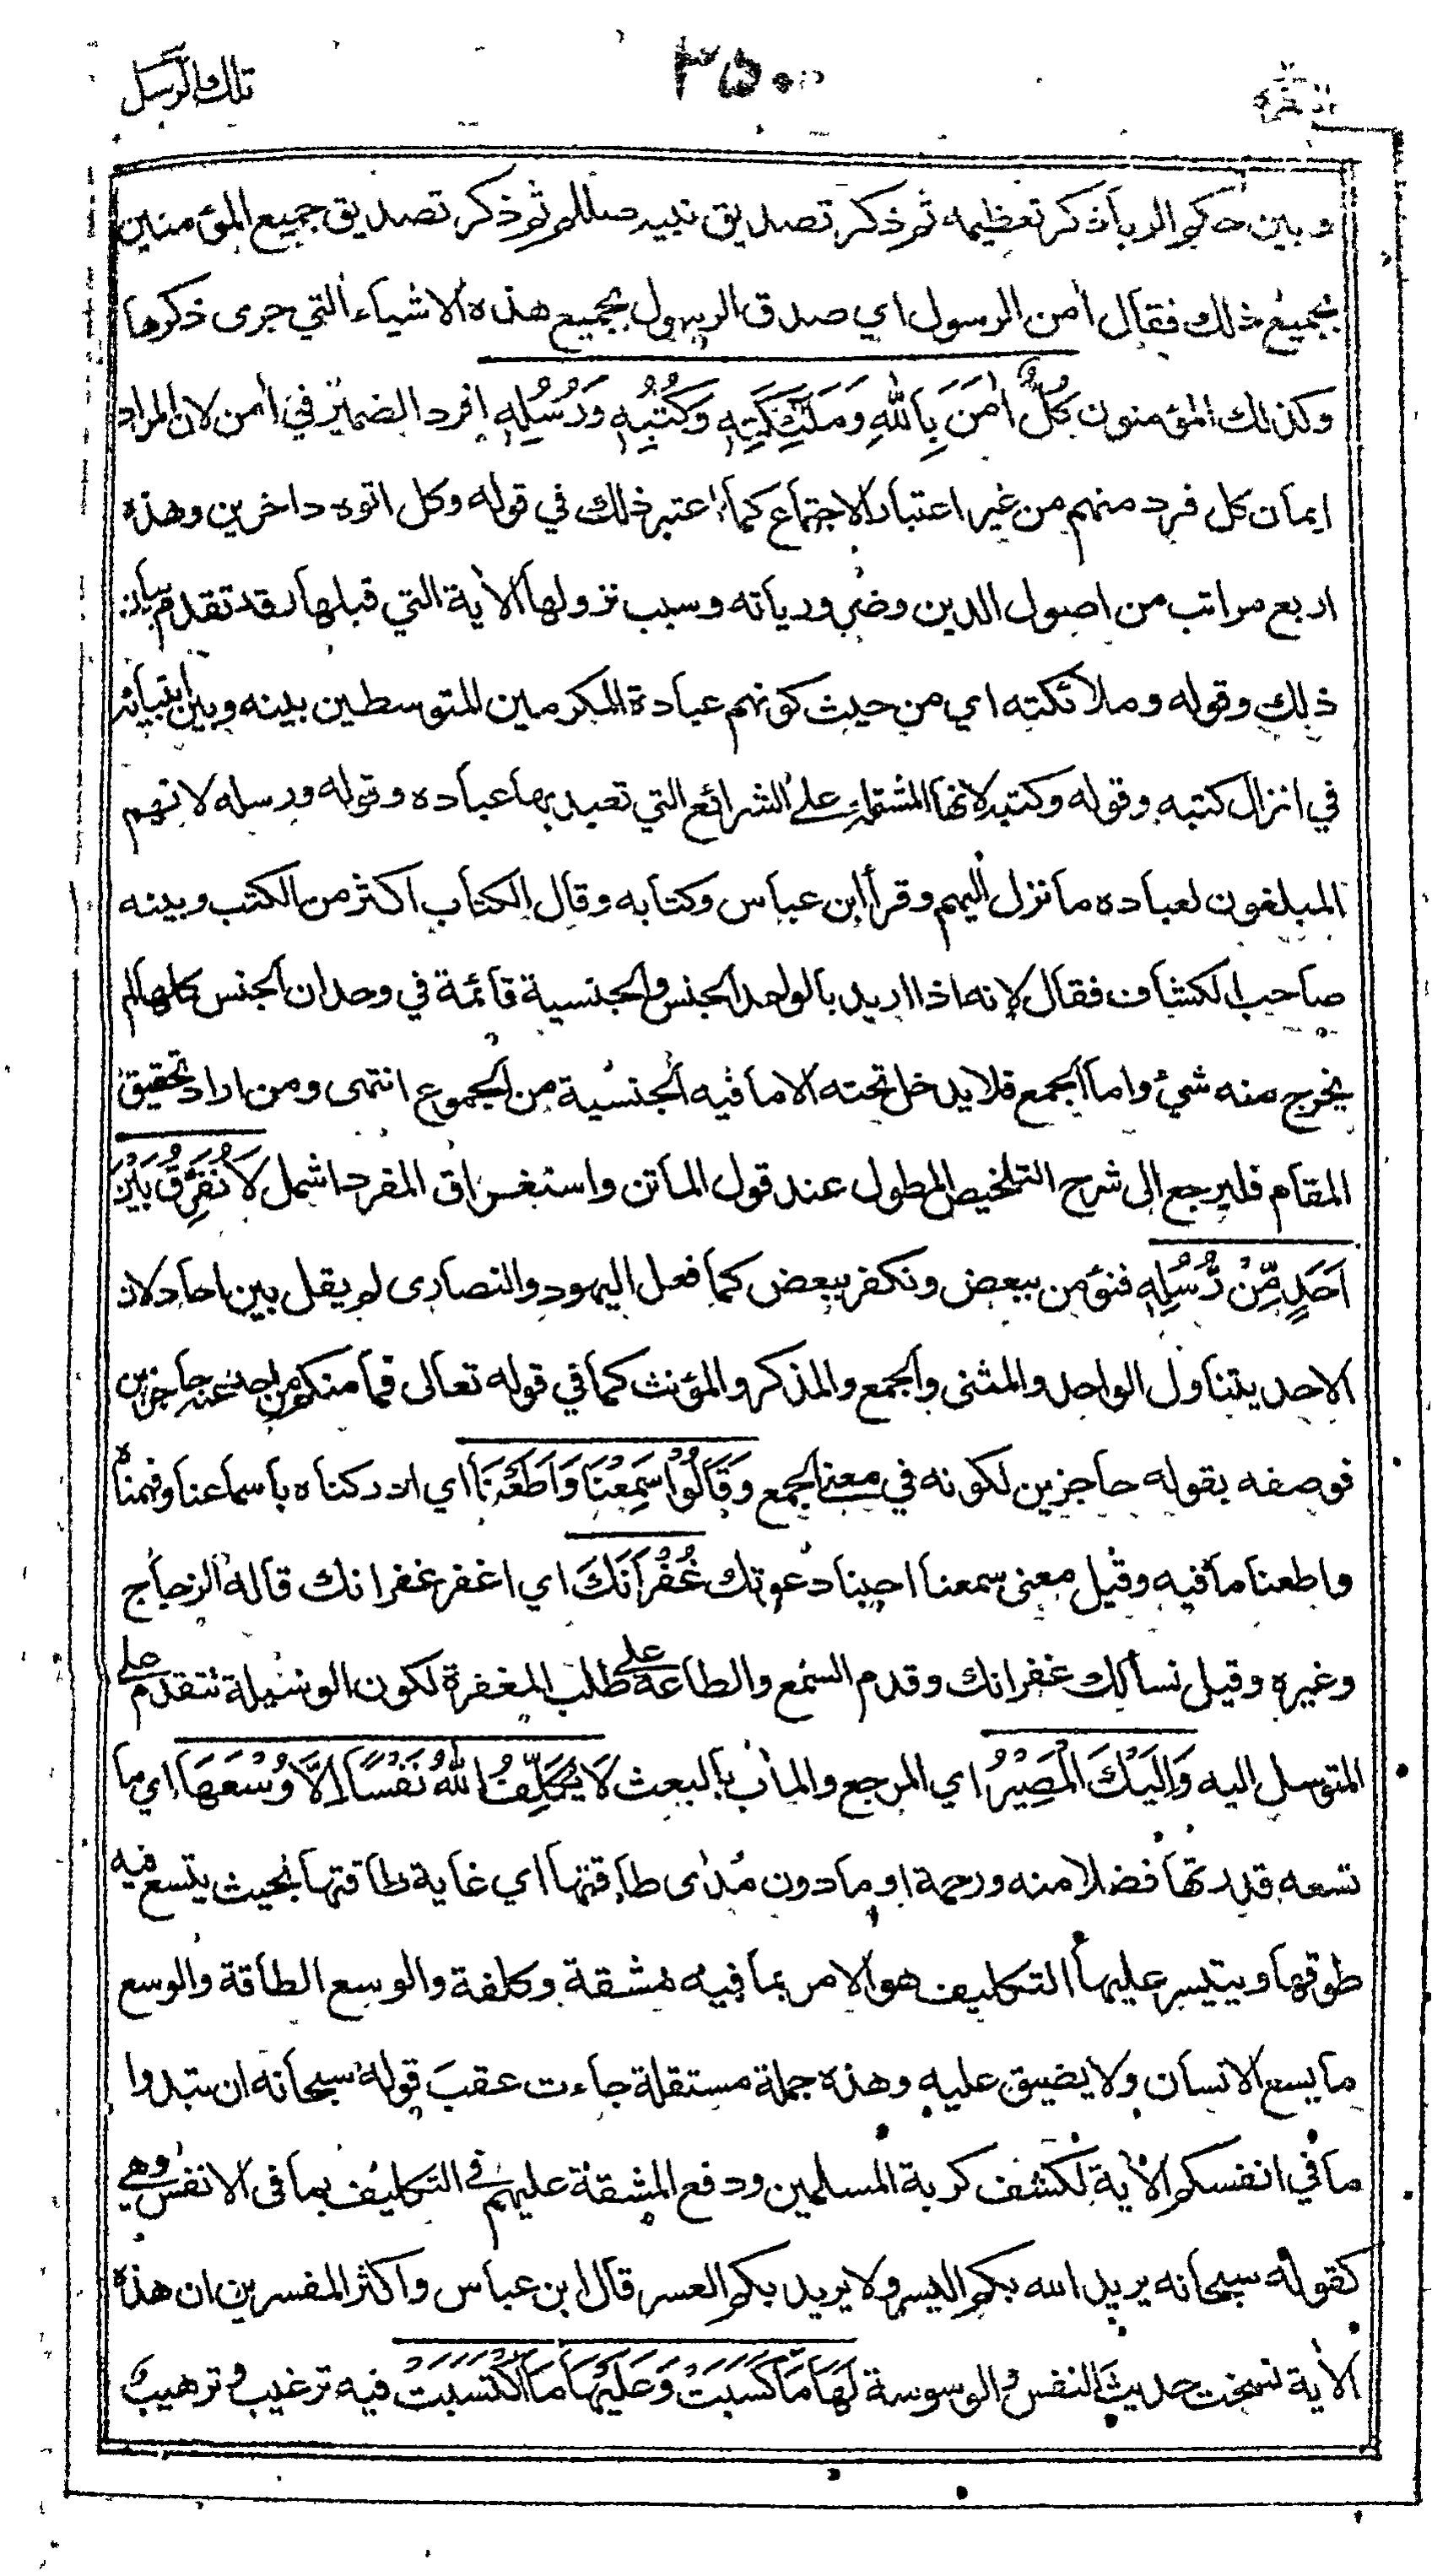 البقرة
٣٥٠
تلك الرسل
وبين حكم الربا ذكر تعظيمه ثم ذكر تصديق نبيه صللم ثم ذكر تصديق جميع المؤمنين
بجميع ذلك فقال اٰمن الرسول اي صدق الرسول بجميع هذه الاشياء التي جرى ذكرها
وكذلك المؤمنون كُلٌّ اٰمَنَ بِاللّٰهِ وَمَلٰٓئِكَتِهٖ وَكُتُبِهٖ وَرُسُلِهٖ افرد الضمير في اٰمن لان المراد
ايمان كل فرد منهم من غير اعتبار الاجتماع كما اعتبر ذلك في قوله وكل اتوه داخرين وهذه
اربع مراتب من اصول الدين وضرورياته وسبب نزولها الاٰية التي قبلها وقد تقدم بيان
ذلك وقوله وملائكته اي من حيث كونهم عبادة المكرمين المتوسطين بينه وبين انبيائه
في انزال كتبه وقوله وكتبه لانها المشتملة على الشرائع التي تعبد بها عباده وقوله ورسله لانهم
المبلغون لعباده ما نزل اليهم وقرأ ابن عباس وكتابه وقال الكتاب اكثر من الكتب وبينه
صاحب الكشاف فقال لانه اذا اريد بالواحد الجنس والجنسية قائمة في وحدان الجنس كلها لم
يخرج منه شئ واما الجمع فلا يدخل تحته الا ما فيه الجنسية من الجموع انتهى ومن اراد تحقيق
المقام فليرجع الى شرح التلخيص المطول عند قول الماتن واستغراق المفرد اشمل لَا نُفَرِّقُ بَيْنَ
اَحَدٍ مِّنْ رُّسُلِهٖ فنؤمن ببعض ونكفر ببعض كما فعل اليهود والنصارى لم يقل بين احاد لان
الاحد يتناول الواحد والمثنى والجمع والمذكر والمؤنث كما في قوله تعالى فما منكم من احد عنه حاجزين
فوصفه بقوله حاجزين لكونه في معنى الجمع وَقَالُوْا سَمِعْنَا وَاَطَعْنَا اي ادركناه باسماعنا وفهمناه
واطعنا ما فيه وقيل معنى سمعنا اجبنا دعوتك غُفْرَانَكَ اي اغفر غفرانك قاله الزجاج
وغيره وقيل نسألك غفرانك وقدم السمع والطاعة على طلب المغفرة لكون الوسيلة تتقدم على
المتوسل اليه وَاِلَيْكَ الْمَصِيْرُ اي المرجع والماٰب بالبعث لَا يُكَلِّفُ اللّٰهُ نَفْسًا اِلَّا وُسْعَهَا اي ما
تسعه قدرتها فضلا منه ورحمة او ما دون مدى طاقتها اي غاية طاقتها بحيث يتسع فيه
طوقها ويتيسر عليها التكليف هو الامر بما فيه مشقة وكلفة والوسع الطاقة والوسع
ما يسع الانسان ولا يضيق عليه وهذه جملة مستقلة جاءت عقب قوله سبحانه ان تبدوا
ما في انفسكم الاٰية لكشف كربة المسلمين ودفع المشقة عليهم في التكليف بما في الانفس وهي
كقوله سبحانه يريد الله بكم اليسر ولا يريد بكم العسر قال ابن عباس واكثر المفسرين ان هذه
الاٰية نسخت حديث النفس والوسوسة لَهَا مَا كَسَبَتْ وَعَلَيْهَا مَا اكْتَسَبَتْ فيه ترغيب وترهيب